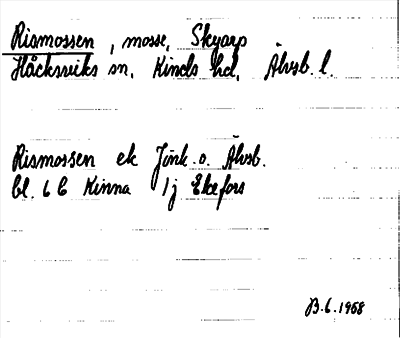 Rismossen, mosse, Skyarp
Håcksviks sn, Kinds hd, Älvsb. l.
Rismossen ek Jönk. o. Älvsb.
bl. 6 C Kinna 1j Ekefors
B.6.1968